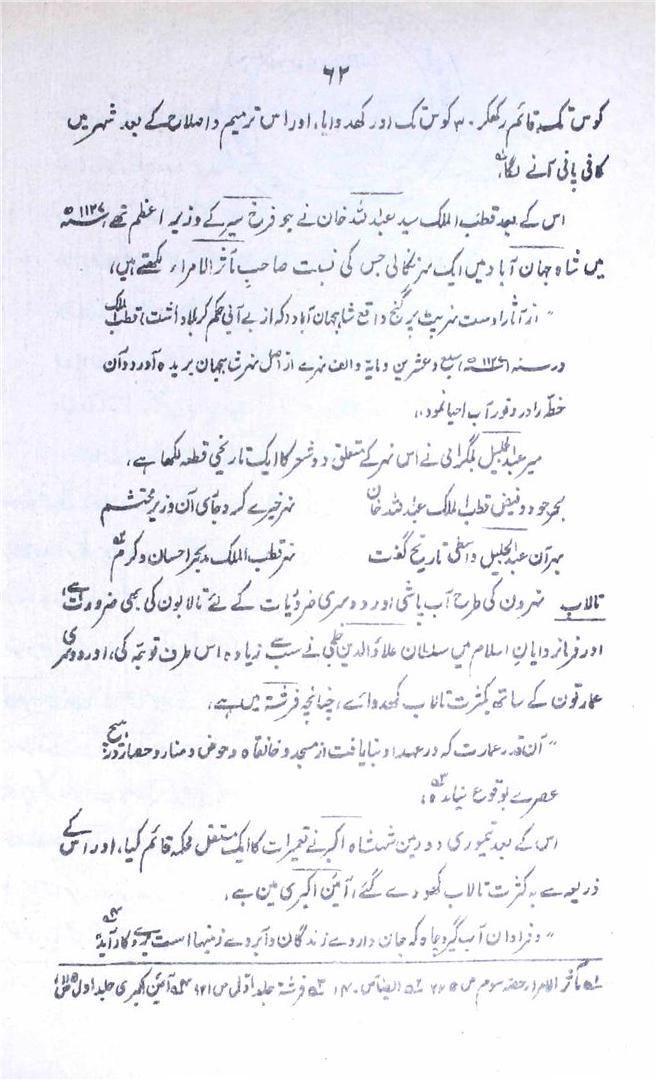 ۶۲
کوس تک قائم رکھکر ۳۰ کوس تک اور کھدوایا، اور اس ترمیم و اصلاح کے بعد شہر میں
کافی پانی آنے لگا،
اس کے بعد قطب الملک سید عبد اللہ خان نے جو فرخ سیر کے وزیر اعظم تھے ۱۱۲۷ھ
میں شاہ جہان آباد میں ایک نہر نکالی جس کی نسبت صاحب مآثر الامراء لکھتے ہیں،
"از آثار اوست نہر پٹ پر گنج واقع شاہجہان آباد کہ از بے آبی حکم کربلا داشت، قطب الملک
در سنہ ۱۱۲۷ھ سبع و عشرین و مایۃ و الف نہرے از اصل نہر شاہجہان بریدہ آورد و آن
خطہ را در وفور آب احیا نمود،،
میر عبد الجلیل بلگرامی نے اس نہر کے متعلق دو شعر کا ایک تاریخی قطعہ لکھا ہے،
بحر جود و فیض قطب الملک عبد اللہ خان نہر خیرے کرد جاری آن وزیر محتشم
بہر آن عبد الجلیل واسطی تاریخ گفت نہر قطب الملک بحر احسان و کرم ۲ھ
تالاب نہرون کی طرح آب پاشی اور دوسری ضروریات کے لئے تالابون کی بھی ضرورت ہے،
اور فرمانروایان اسلام میں سلطان علاؤ الدین خلجی نے سب سے زیادہ اس طرف توجہ کی، اور دوسری
عمارتون کے ساتھ بکثرت تالاب کھدوائے، چنانچہ فرشتہ میں ہے،
"آن قدر عمارت کہ در عہد او بنا یافت از مسجد و خانقاہ و حوض و منار و حصار در ہیچ
عصرے بوقوع نیامدہ ۳ھ،
اس کے بعد تیموری دور مین شہنشاہ اکبر نے تعمیرات کا ایک مستقل محکمہ قائم کیا، اور اس کے
ذریعہ سے بہ کثرت تالاب کھودے گئے، آئین اکبری مین ہے،
"و فراوان آب گیر و چاہ کہ جان داروے زندگان و آبروے زمینہا است بروے کار آید ۴ھ
۱ھ مآثر الامراء حصہ سوم ص ۲ھ ایضاً ص ۱۴۰ ۳ھ فرشتہ جلد اول ص ۱۲۱ ۴ھ آئین اکبری جلد اول ص